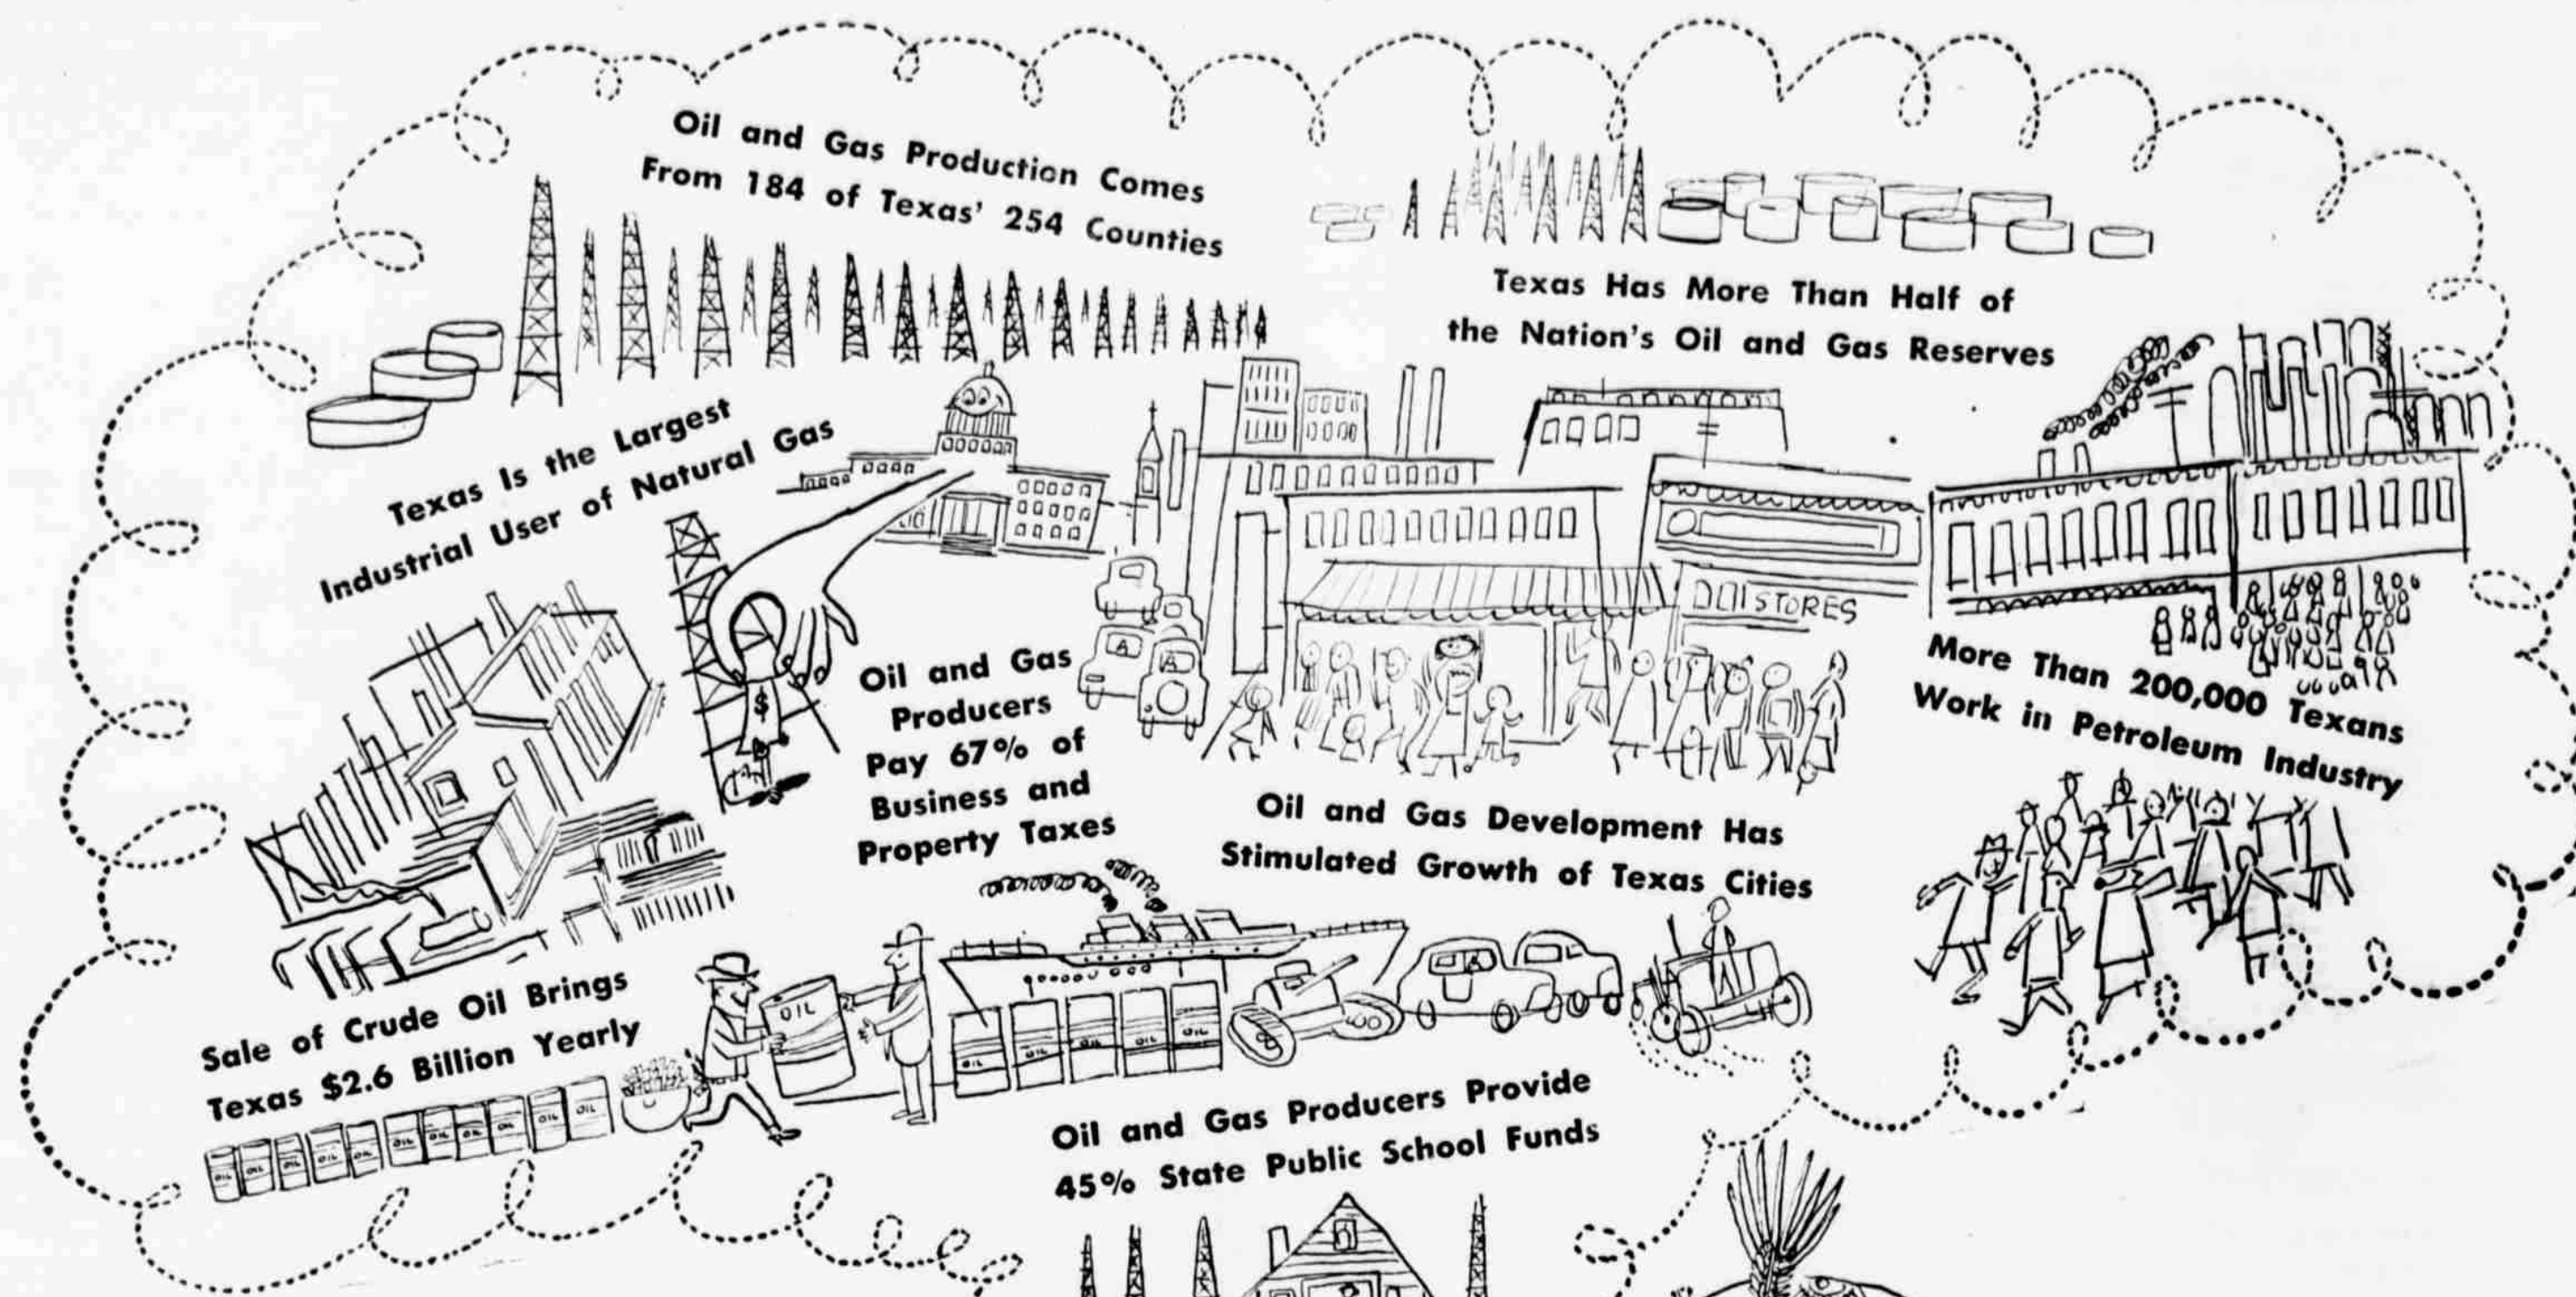 Oil and Gas Production Comes
From 184 of Texas' 254 Counties
Texas Has More Than Half of
the Nation's Oil and Gas Reserves
Texas Is the Largest
Industrial User of Natural Gas
$
A
A
STORES
Oil and Gas
Producers
Pay 67% of
Business and
Property Taxes
More Than 200,000 Texans
Work in Petroleum Industry
Oil and Gas Development Has
Stimulated Growth of Texas Cities
Sale of Crude Oil Brings
Texas $2.6 Billion Yearly
OIL
OIL OIL OIL OIL OIL
OIL OIL OIL OIL OIL OIL OIL OIL OIL OIL OIL
Oil and Gas Producers Provide
45% State Public School Funds